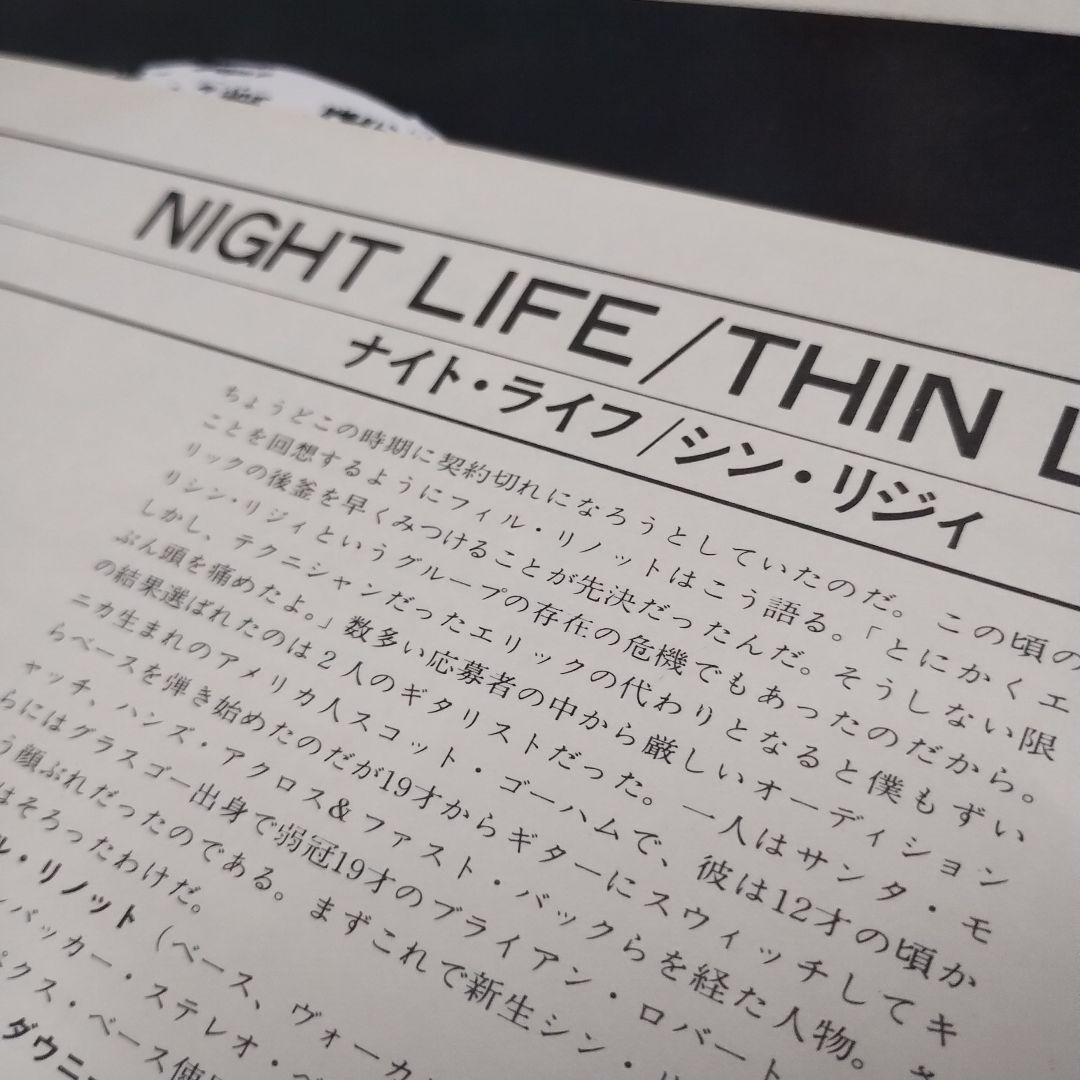 NIGHT LIFE/THIN L
ナイト・ライフ/シン・リジィ
ちょうどこの時期に契約切れになろうとしていたのだ。この頃の
ことを回想するようにフィル・リノットはこう語る。「とにかくエ
リックの後釜を早くみつけることが先決だったんだ。そうしない限
りシン・リジィというグループの存在の危機でもあったのだから。
しかし、テクニシャンだったエリックの代わりとなると僕もずい
ぶん頭を痛めたよ。」数多い応募者の中から厳しいオーディション
の結果選ばれたのは2人のギタリストだった。一人はサンタ・モ
ニカ生まれのアメリカ人スコット・ゴーハムで、彼は12才の頃か
らベースを弾き始めたのだが19才からギターにスウィッチしてキ
ャッチ、ハンズ・アクロス&ファスト・バックらを経た人物。
らにはグラスゴー出身で弱冠19才のブライアン・ロバート
う顔ぶれだったのである。まずこれで新生シン・
はそろったわけだ。
ル・リノット（ベース、ヴォーカ
ンバッカー・ステレオ・ベ
ペクス・ベース使
ダウニー